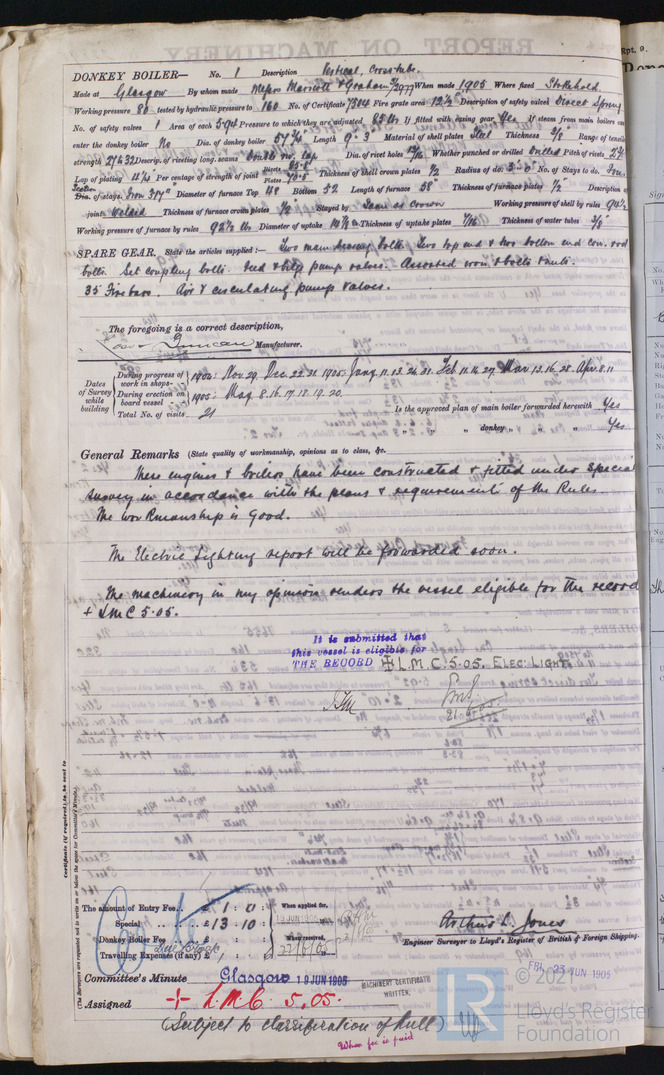 DONKEY BOILER— No. 1 Description Vertical, Cross tube.
Made at Glasgow By whom made Messrs Marriott & Graham When made 1905 Where fixed Stokehold
Working pressure 80 tested by hydraulic pressure to 160 No. of Certificate Fire grate area 12½ Description of safety valves Direct Spring
No. of safety valves 1 Area of each 5.94 Pressure to which they are adjusted 85 lbs If fitted with easing gear Yes If steam from main boilers can
enter the donkey boiler No Dia. of donkey boiler Length 9'-3" Material of shell plates Steel Thickness Range of tensile
strength 27 & 32 Descrip. of riveting long. seams Double riv. lap Dia. of rivet holes Whether punched or drilled Drilled Pitch of rivets
Lap of plating Per centage of strength of joint Rivets Plates 70.5 Thickness of shell crown plates ½ Radius of do. 3'-0" No. of Stays to do. Four
Dia. of stays. Diameter of furnace Top 48 Bottom 52 Length of furnace 58" Thickness of furnace plates ½" Description of
joint Welded Thickness of furnace crown plates ½" Stayed by Same as crown Working pressure of shell by rules
Working pressure of furnace by rules 92½ lbs Diameter of uptake Thickness of uptake plates 7/16 Thickness of water tubes 3/8"
SPARE GEAR. State the articles supplied:— Two main bearing bolts. Two top end & two bottom end con. rod
bolts. Set coupling bolts. Feed & bilge pump valves. Assorted iron & bolts & nuts.
35 Fire bars. Air & circulating pump valves.
The foregoing is a correct description,
Duncan Manufacturer.
Dates of Survey while building
During progress of work in shops - - 1904: Nov. 29. Dec. 22. 1905: Jany. 11. 13. 24. 31. Feb 11. 14. 27. Mar 13. 16. 28. Apr. 8. 11
During erection on board vessel - - 1905: May 8. 16. 17. 18. 19. 20.
Total No. of visits 21
Is the approved plan of main boiler forwarded herewith Yes
" " donkey " " " Yes
General Remarks (State quality of workmanship, opinions as to class, &c.
These engines & boilers have been constructed & fitted under special
survey in accordance with the plans & requirements of the Rules.
The workmanship is Good.
The Electric Lighting report will be forwarded soon.
The machinery in my opinion renders the vessel eligible for the record
+ LMC 5.05.
It is submitted that
this vessel is eligible for
THE RECORD + L.M.C. 5.05. ELEC: LIGHT.
Certificate (if required) to be sent to
(The Surveyors are requested not to write on or below the space for Committee's Minute.)
The amount of Entry Fee.. £ 1 : 0 : When applied for,
Special .. .. £ 13 : 10 : 19 JUN 1905
Donkey Boiler Fee .. £ : : When received,
Travelling Expenses (if any) £ : :
Arthur L. Jones
Engineer Surveyor to Lloyd's Register of British & Foreign Shipping.
FRI. 23 JUN 1905
Committee's Minute Glasgow 19 JUN 1905
MACHINERY CERTIFICATE
WRITTEN.
Assigned + L.M.C. 5.05.
(Subject to classification of hull)
When fee is paid
© 2021
LR
Lloyd's Register
Foundation
Rpt. 9.